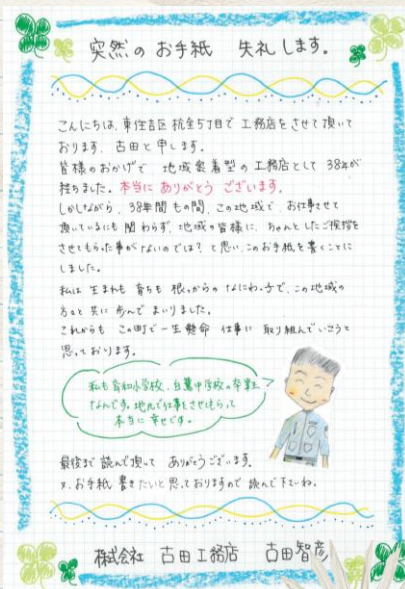 突然の お手紙 失礼します。
こんにちは、東住吉区 杭全5丁目で 工務店をさせて頂いて
おります、古田と申します。
皆様のおかげで 地域密着型の 工務店として 38年が
経ちました。本当に ありがとう ございます。
しかしながら、38年間もの間、この地域で、お仕事させて
頂いているにも 関わらず、地域の皆様に、ちゃんとしたご挨拶を
させてもらった事がないのでは?と思い、このお手紙を書くことに
しました。
私は 生まれも 育ちも 根っからの なにわっ子で、この地域の
方々と 共に 歩んで まいりました。
これからも この町で一生懸命 仕事に 取り組んでいこうと
思っております。
私も育和小学校、白鷺中学校の卒業生
なんです。地元で仕事をさせてもらって
本当に 幸せです。
最後まで 読んで頂って ありがとうございます。
又、お手紙 書きたいと思っておりますので 読んで下さいね。
株式会社 古田工務店 古田智彦